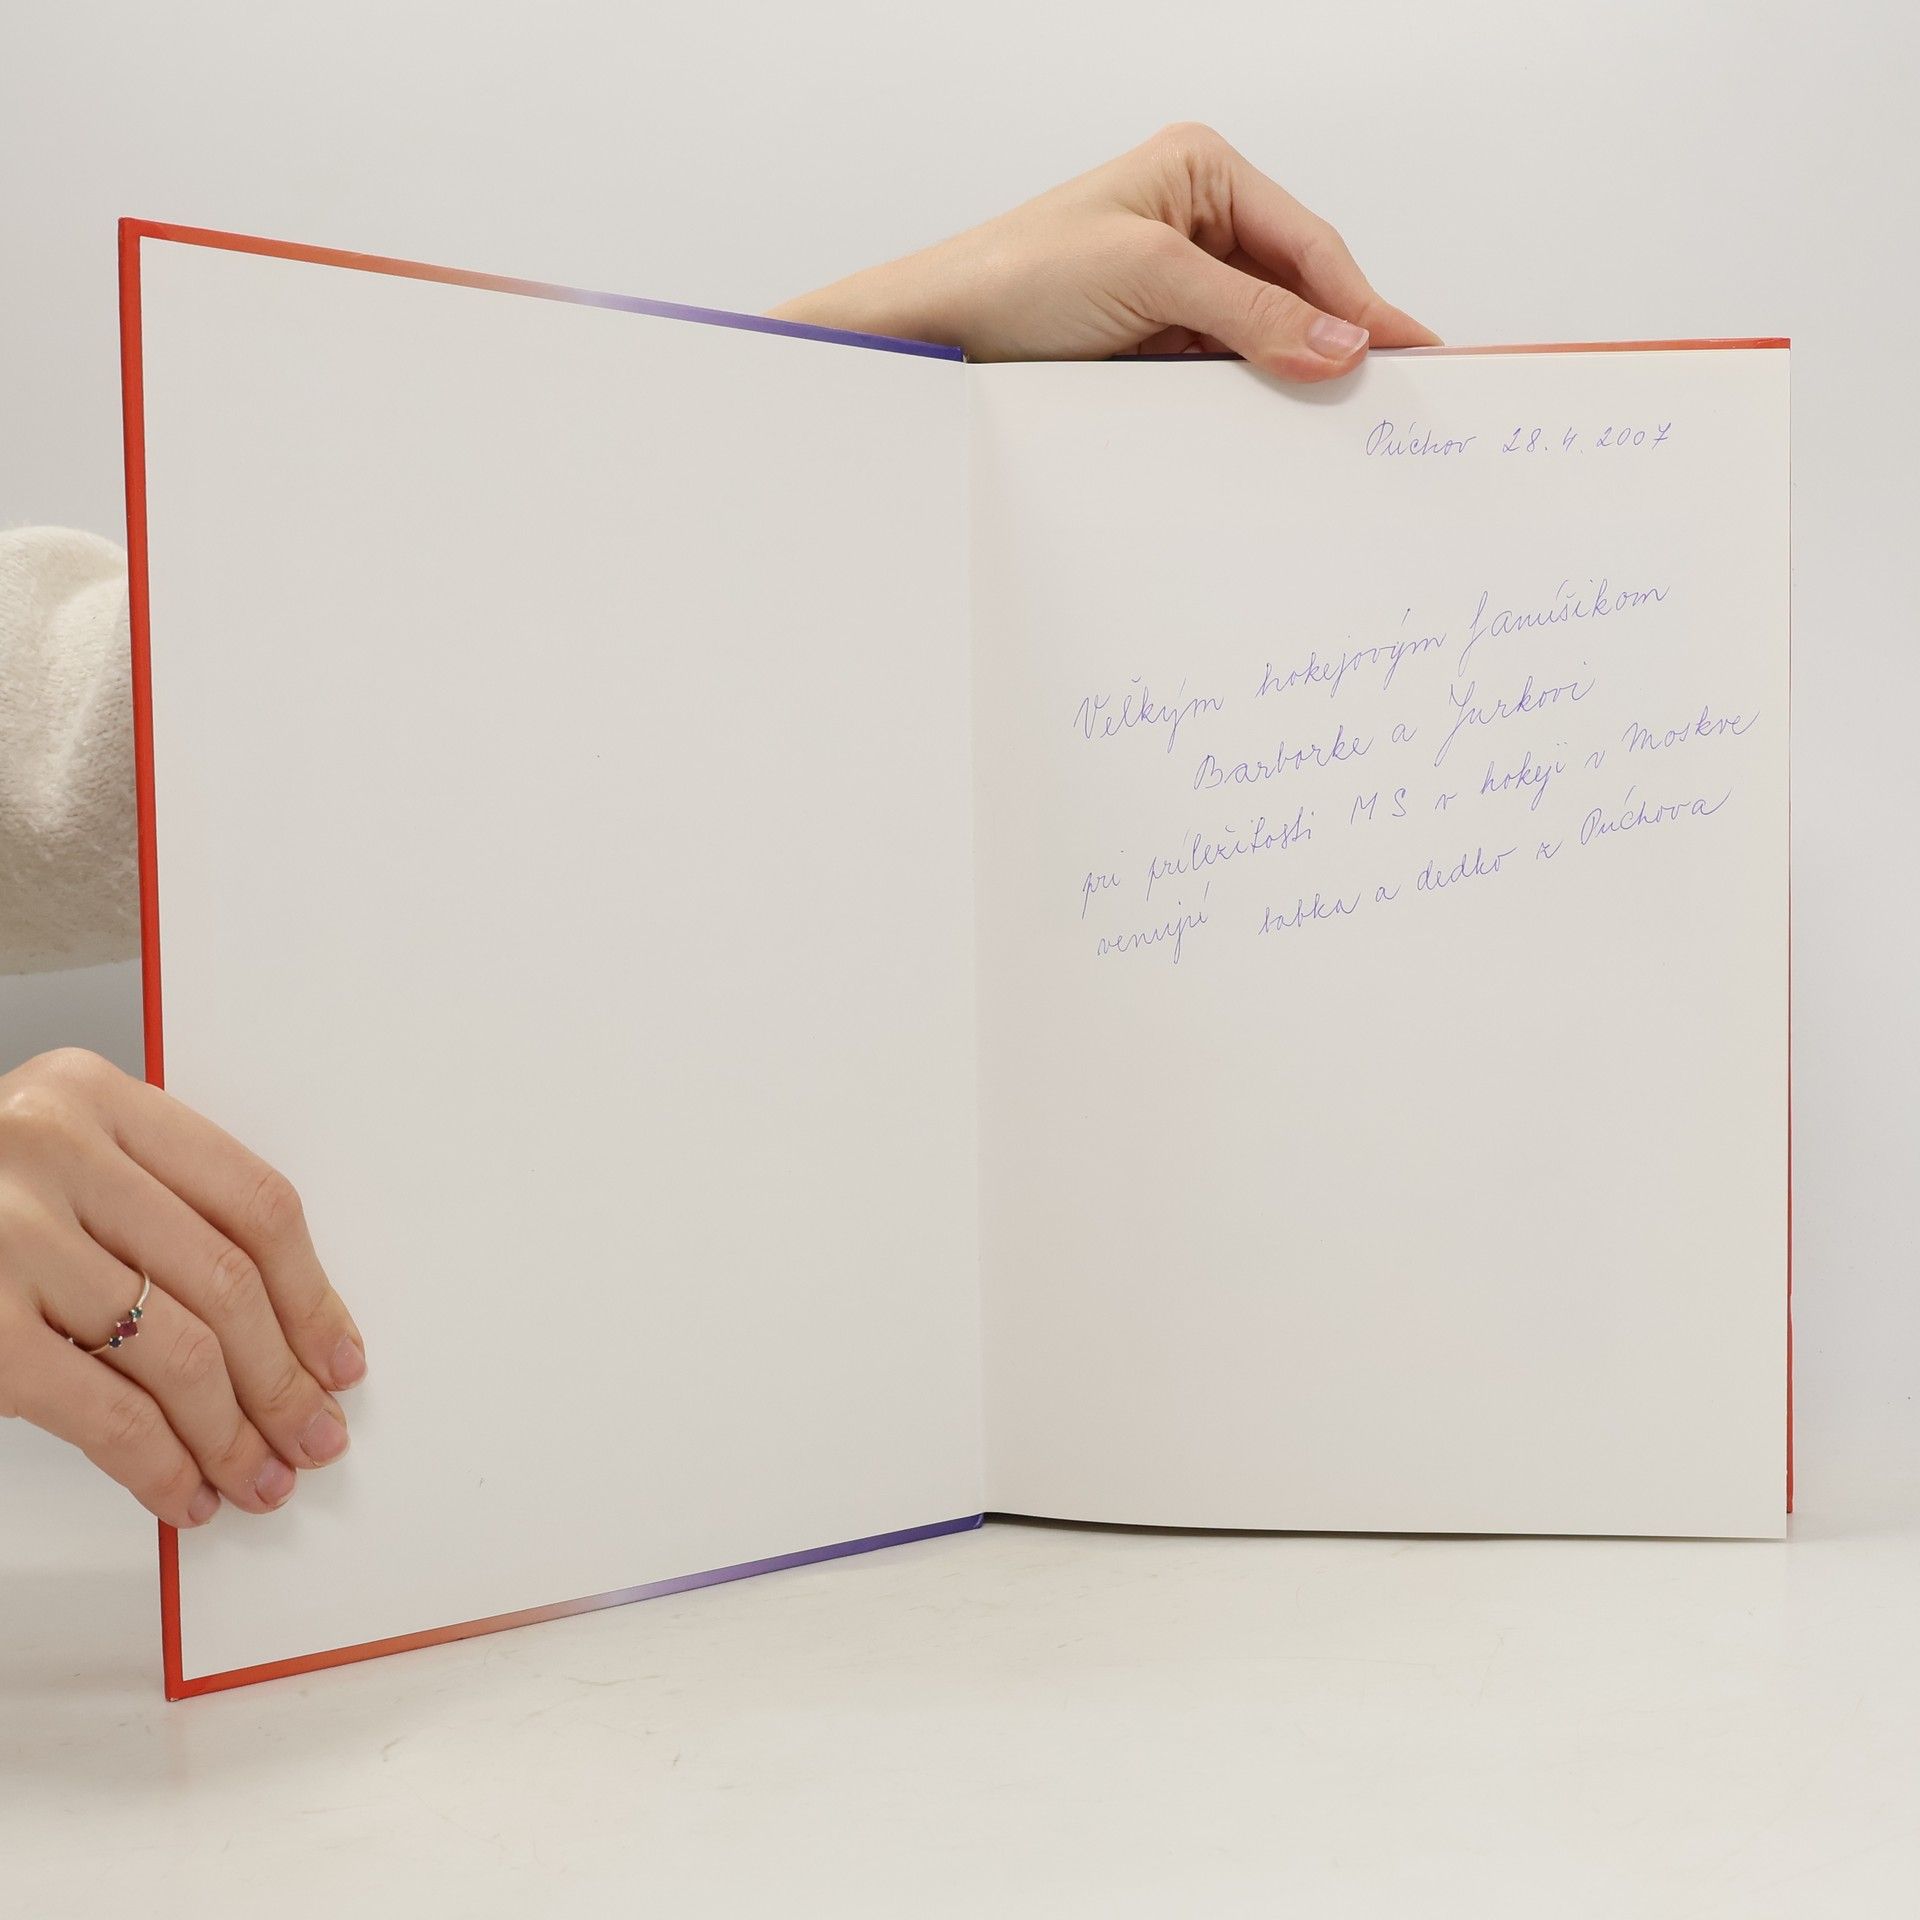 Púchov 28.4.2007
Veľkým hokejovým fanúšikom
Barborke a Jurkovi
pri príležitosti MS v hokeji v Moskve
venujú babka a dedko z Púchova